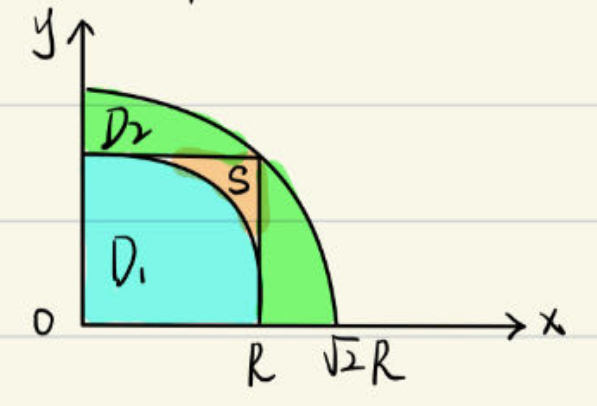 y
D₂
S
D₁
0
x
R
√2 R